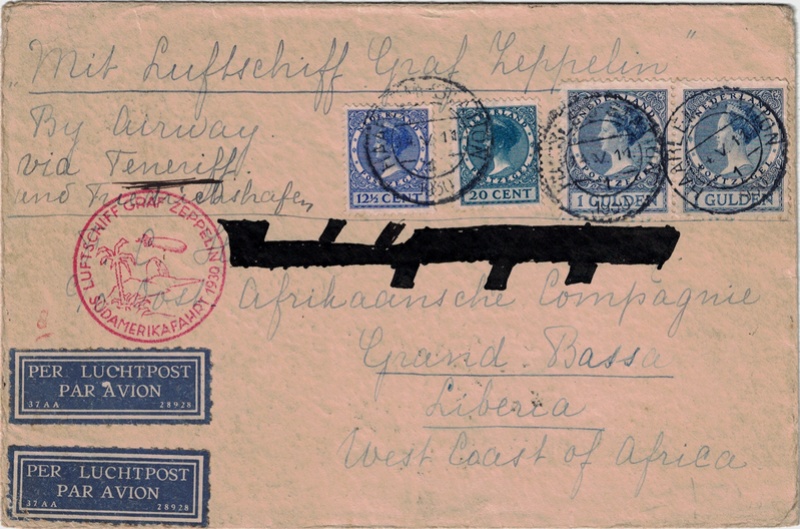 „Mit Luftschiff Graf Zeppelin"
By Airway.
via Teneriff.
und Friedrichshafen
NEDERLAND
12½ CENT
NEDERLAND
20 CENT
NEDERLAND
POSTZEGEL
1 GULDEN
NEDERLAND
POSTZEGEL
GULDEN
LUFTSCHIFF GRAF ZEPPELIN
SÜDAMERIKAFAHRT 1930
Oost Afrikaansche Compagnie
Grand-Bassa
Liberia
West Coast of Africa
PER LUCHTPOST
PAR AVION
37AA 28928
PER LUCHTPOST
PAR AVION
37AA 28928